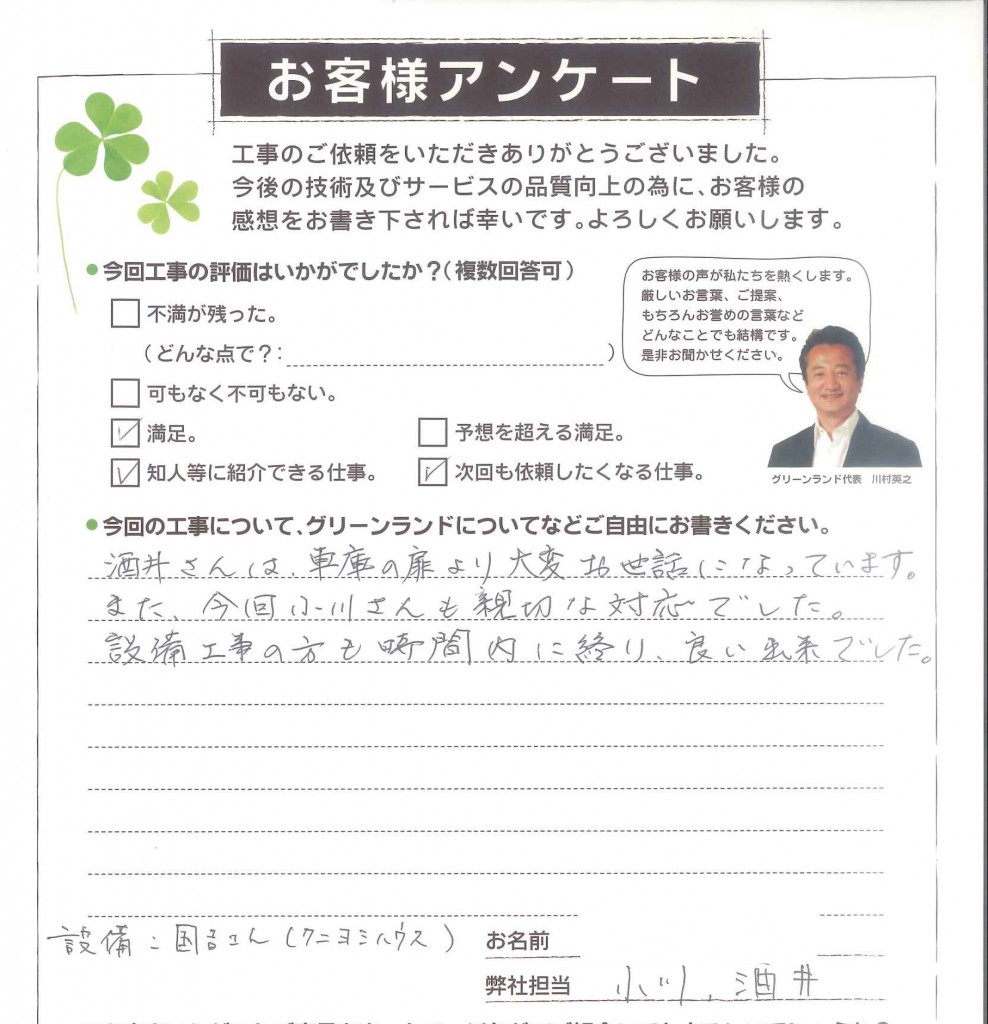 お客様アンケート
工事のご依頼をいただきありがとうございました。
今後の技術及びサービスの品質向上の為に、お客様の
感想をお書き下されば幸いです。よろしくお願いします。
●今回工事の評価はいかがでしたか？（複数回答可）
不満が残った。
（どんな点で？：　）
可もなく不可もない。
満足。
予想を超える満足。
知人等に紹介できる仕事。
次回も依頼したくなる仕事。
お客様の声が私たちを熱くします。
厳しいお言葉、ご提案、
もちろんお誉めの言葉など
どんなことでも結構です。
是非お聞かせください。
グリーンランド代表　川村英之
●今回の工事について、グリーンランドについてなどご自由にお書きください。
酒井さんは、車庫の扉より大変お世話になっています。
また、今回小川さんも親切な対応でした。
設備工事の方も時間内に終り、良い出来でした。
設備：国吉さん（クニヨシハウス）
お名前
弊社担当　小川、酒井